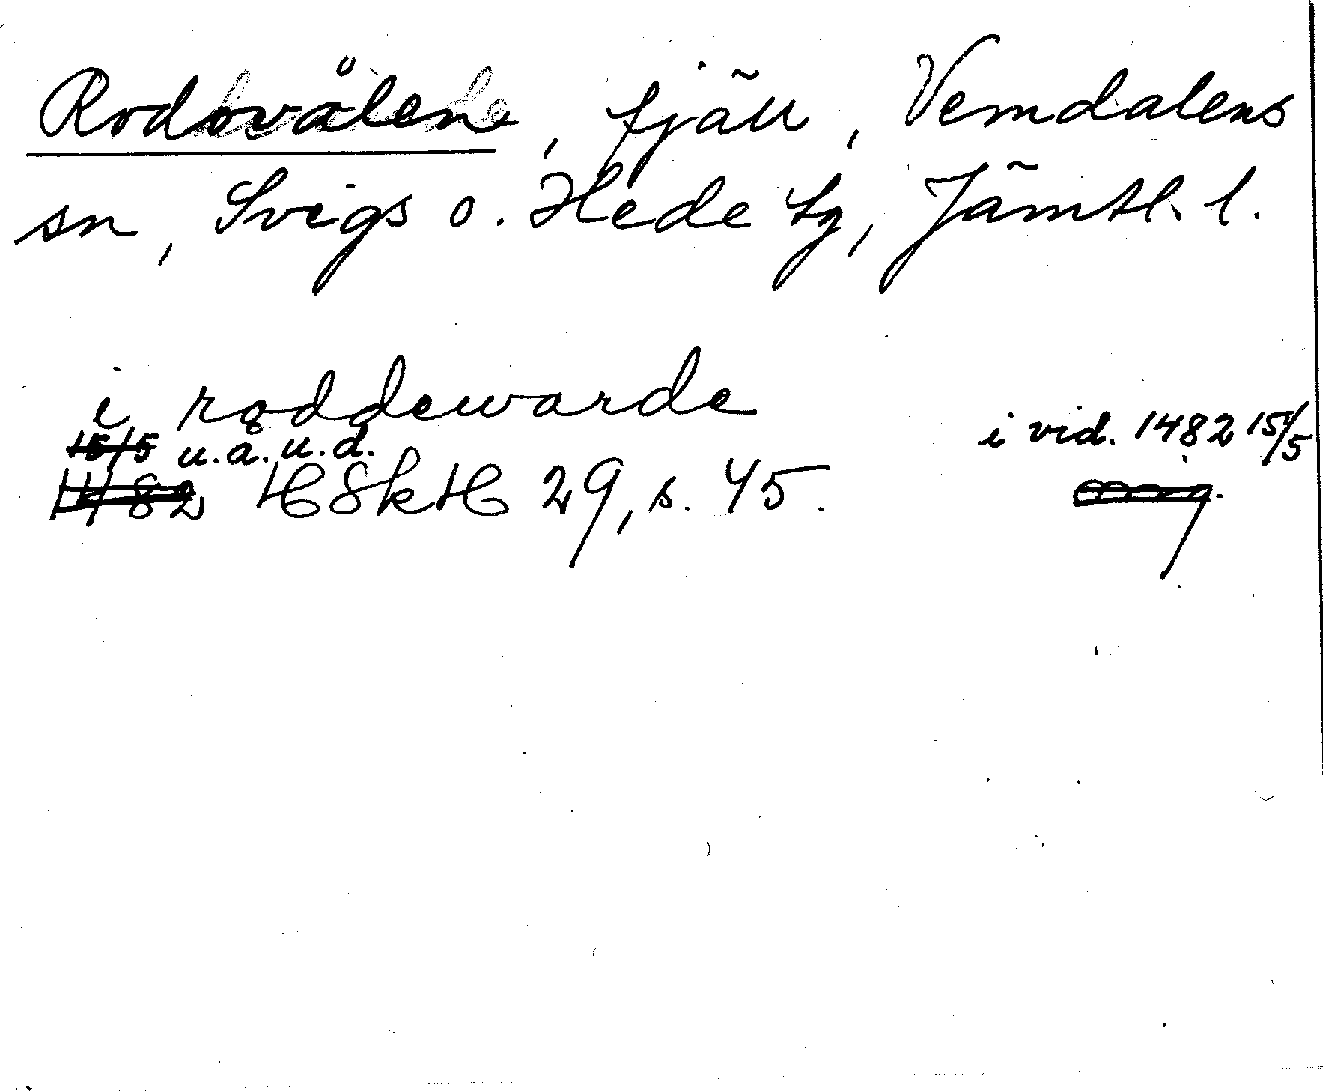 Rodovålen, fjäll, Vemdalens
sn, Svegs o. Hede tg, Jämtl. l.
i røddewarde
i vid. 1482 15/5
15/5 u.å.u.d.
1482 HSkH 29, s. 45.